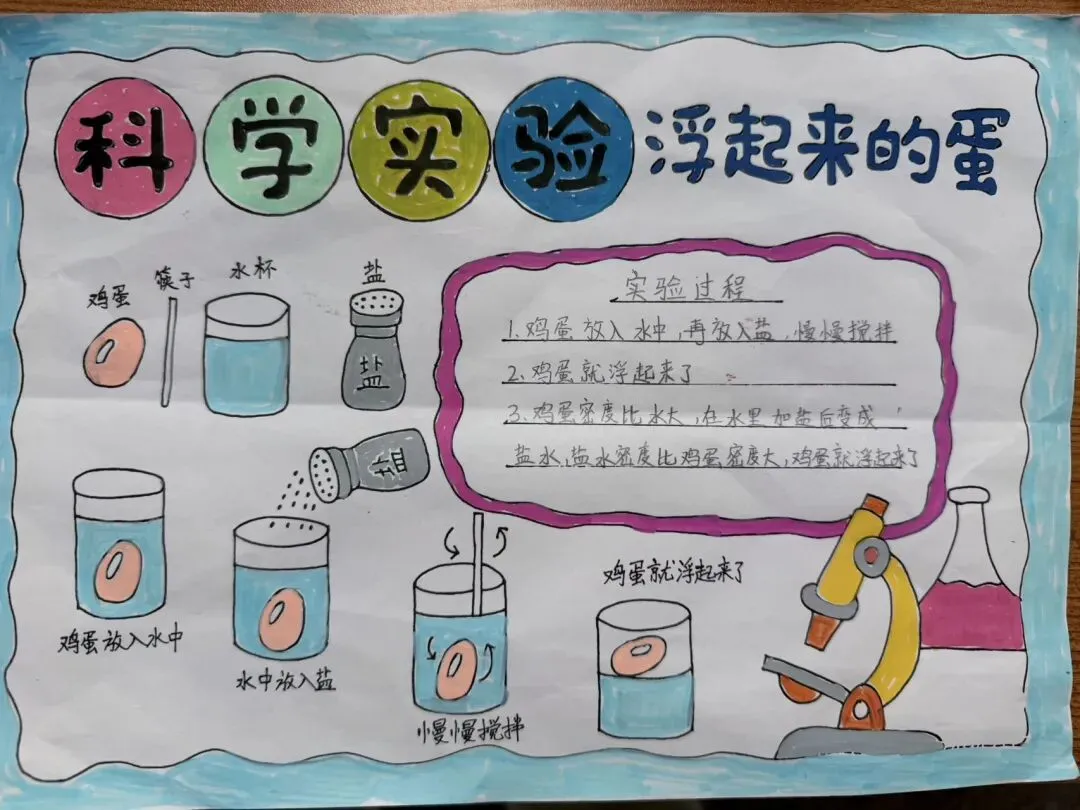 科学实验 浮起来的蛋
鸡蛋
筷子
水杯
盐
盐
实验过程
1.鸡蛋放入水中,再放入盐,慢慢搅拌
2、鸡蛋就浮起来了
3、鸡蛋密度比水大,在水里加盐后变成
盐水,盐水密度比鸡蛋密度大,鸡蛋就浮起来了
盐
鸡蛋放入水中
水中放入盐
慢慢搅拌
鸡蛋就浮起来了